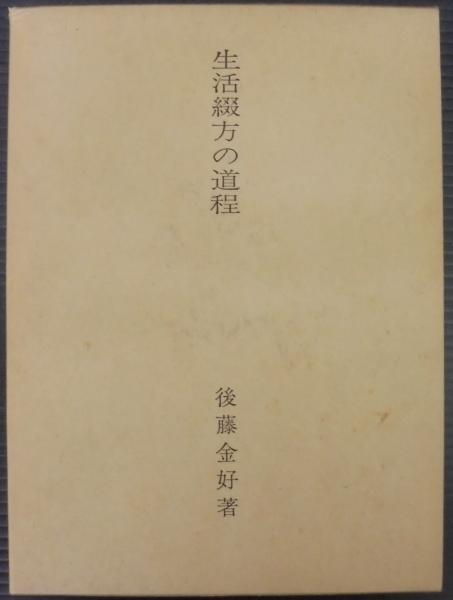 生活綴方の道程
後藤金好著